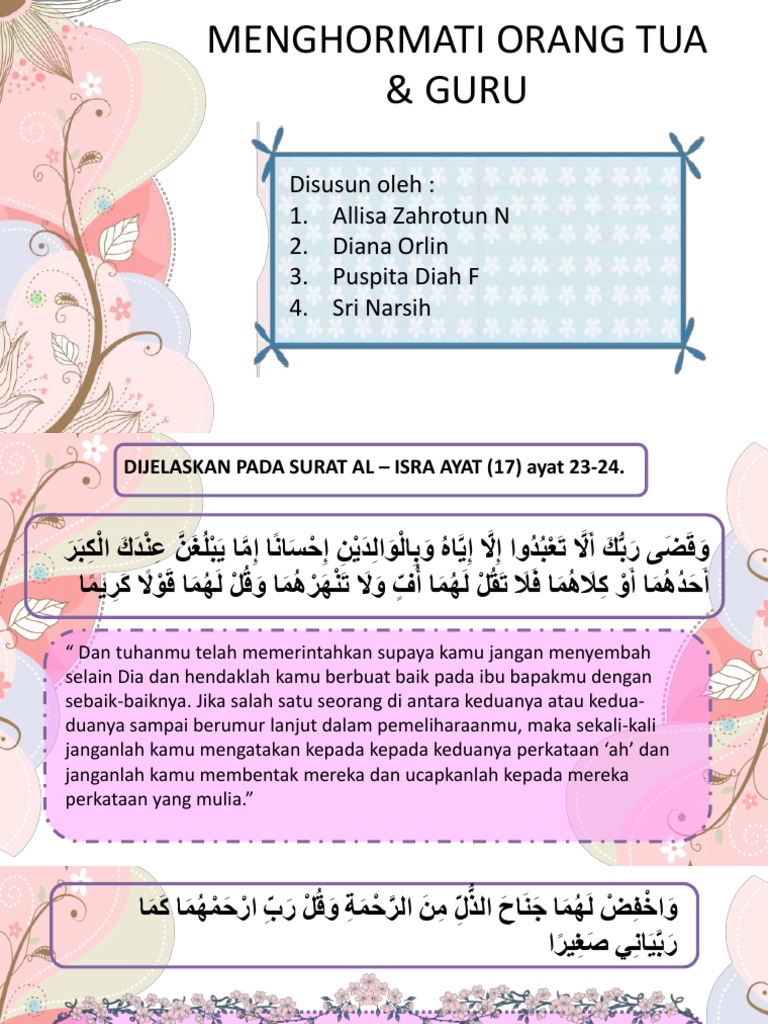 MENGHORMATI ORANG TUA
& GURU
Disusun oleh :
1. Allisa Zahrotun N
2. Diana Orlin
3. Puspita Diah F
4. Sri Narsih
DIJELASKAN PADA SURAT AL – ISRA AYAT (17) ayat 23-24.
وَقَضَى رَبُّكَ أَلَّا تَعْبُدُوا إِلَّا إِيَّاهُ وَبِالْوَالِدَيْنِ إِحْسَانًا إِمَّا يَبْلُغَنَّ عِنْدَكَ الْكِبَرَ
أَحَدُهُمَا أَوْ كِلَاهُمَا فَلَا تَقُلْ لَهُمَا أُفٍّ وَلَا تَنْهَرْهُمَا وَقُلْ لَهُمَا قَوْلًا كَرِيمًا
“ Dan tuhanmu telah memerintahkan supaya kamu jangan menyembah
selain Dia dan hendaklah kamu berbuat baik pada ibu bapakmu dengan
sebaik-baiknya. Jika salah satu seorang di antara keduanya atau kedua-
duanya sampai berumur lanjut dalam pemeliharaanmu, maka sekali-kali
janganlah kamu mengatakan kepada kepada keduanya perkataan ‘ah’ dan
janganlah kamu membentak mereka dan ucapkanlah kepada mereka
perkataan yang mulia.”
وَاخْفِضْ لَهُمَا جَنَاحَ الذُّلِّ مِنَ الرَّحْمَةِ وَقُلْ رَبِّ ارْحَمْهُمَا كَمَا
رَبَّيَانِي صَغِيرًا